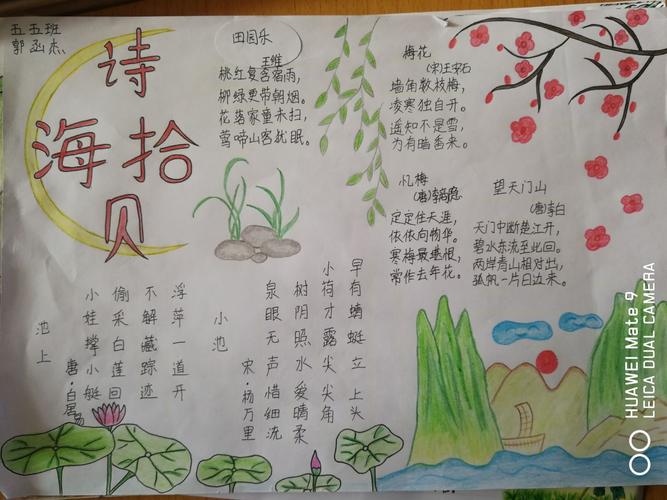 五五班
郭丞杰
诗
海拾
贝
田园乐
王维
桃红复含宿雨，
柳绿更带朝烟。
花落家童未扫，
莺啼山客犹眠。
梅花
(宋)王安石
墙角数枝梅，
凌寒独自开。
遥知不是雪，
为有暗香来。
忆梅
(唐)李商隐
定定住天涯，
依依向物华。
寒梅最堪恨，
常作去年花。
望天门山
(唐)李白
天门中断楚江开，
碧水东流至此回。
两岸青山相对出，
孤帆一片日边来。
池上
唐·白居易
小娃撑小艇
偷采白莲回
不解藏踪迹
浮萍一道开
小池
宋·杨万里
泉眼无声惜细流
树阴照水爱晴柔
小荷才露尖尖角
早有蜻蜓立上头
HUAWEI Mate 9
LEICA DUAL CAMERA